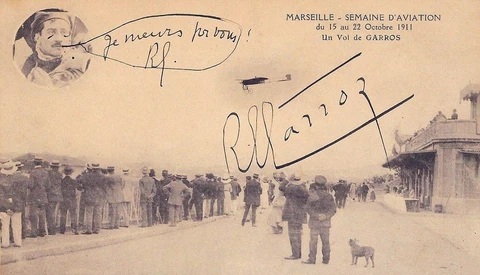 MARSEILLE - SEMAINE D'AVIATION
du 15 au 22 Octobre 1911
Un Vol de GARROS
Je meurs pr vous!
Rg.
R. Garros